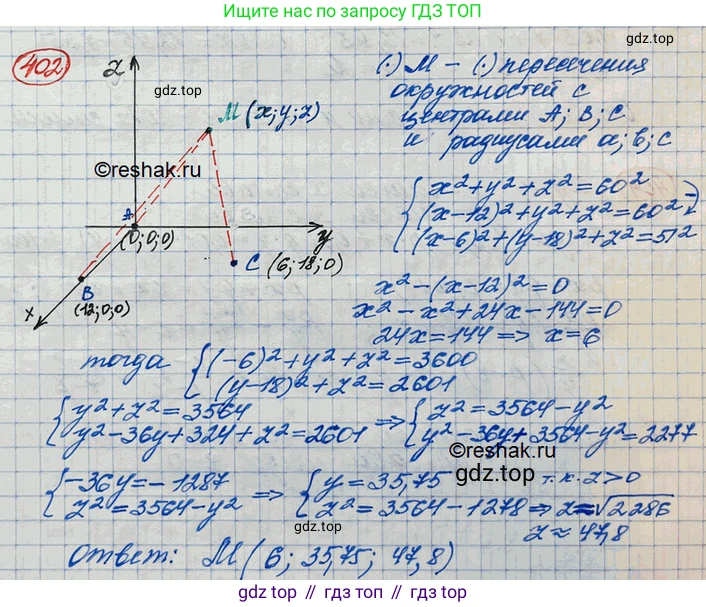 Ищите решения по запросу ГДЗ ТОП
402
z
gdz.top
M (x; y; z)
©reshak.ru
A
(0; 0; 0)
y
C (6; 18; 0)
B
(12; 0; 0)
x
(·) M – (·) пересечения
окружностей с
gdz.top
центрами A; B; C
и радиусами a; b; c
{ x² + y² + z² = 60²
(x-12)² + y² + z² = 60² ⇒
(x-6)² + (y-18)² + z² = 51²
x² - (x-12)² = 0
x² - x² + 24x - 144 = 0
24x = 144 ⇒ x = 6
тогда { (-6)² + y² + z² = 3600
(y-18)² + z² = 2601
{ y² + z² = 3564
y² - 36y + 324 + z² = 2601
⇒ { z² = 3564 - y²
y² - 36y + 3564 - y² = 2277
©reshak.ru
gdz.top
{ -36y = -1287
z² = 3564 - y²
⇒ { y = 35,75 т.к. z > 0
z² = 3564 - 1278 ⇒ z = √2286
z ≈ 47,8
gdz.top
Ответ: M (6; 35,75; 47,8)
gdz.top
gdz.top // gdz.top // gdz.top